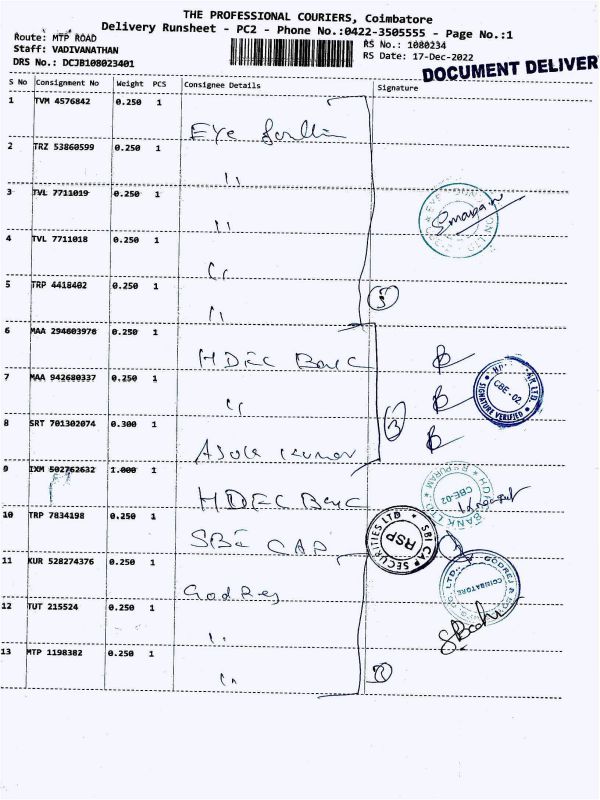 THE PROFESSIONAL COURIERS, Coimbatore
Delivery Runsheet - PC2 - Phone No.:0422-3505555 - Page No.:1
Route: MTP ROAD
RS No.: 1080234
Staff: VADIVANATHAN
RS Date: 17-Dec-2022
DRS No.: DCJB108023401
DOCUMENT DELIVER
S No Consignment No Weight PCS Consignee Details Signature
1 TVM 4576842 0.250 1
Eye
2 TRZ 53860599 0.250 1
"
3 TVL 7711019 0.250 1
"
4 TVL 7711018 0.250 1
"
5 TRP 4418402 0.250 1
"
5
6 MAA 294603976 0.250 1
HDFC Bank
7 MAA 942680337 0.250 1
"
8 SRT 701302074 0.300 1
Asok Kumar
3
SIGNATURE VERIFIED
CBE-02
9 IXM 502762632 1.000 1
HDFC Bank
BANK LTD
CBE-02
10 TRP 7834198 0.250 1
SBI CAP
SBI CAP SECURITIES LTD
RSP
11 KUR 528274376 0.250 1
Godrej
GODREJ &
COIMBATORE
12 TUT 215524 0.250 1
"
13 MTP 1198382 0.250 1
"